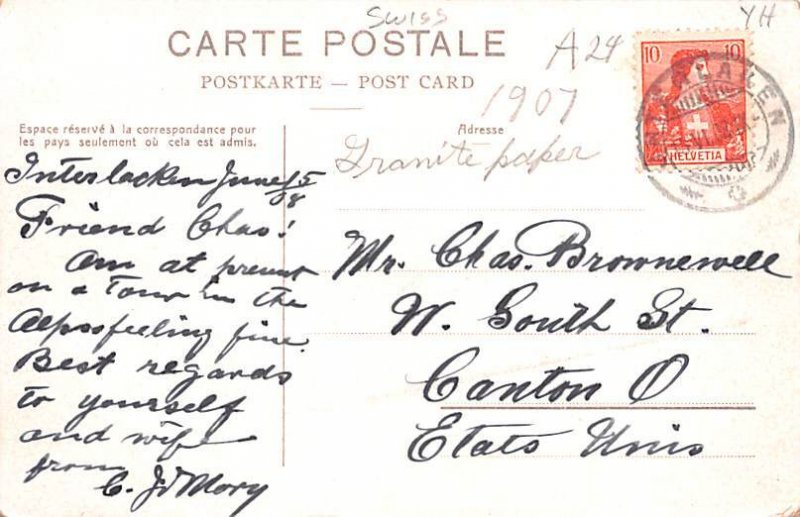 Swiss
YH
CARTE POSTALE
A24
POSTKARTE — POST CARD
1907
10 10
HELVETIA
INTERLAKEN
Espace réservé à la correspondance pour
les pays seulement où cela est admis.
Adresse
Granite paper
Interlacken June 15
08
Friend Chas!
Am at present
on a Tour in the
Alps feeling fine.
Best regards
to yourself
and wife
from
C. Mory
Mr. Chas. Brownewell
W. South St.
Canton O
Etats Unis